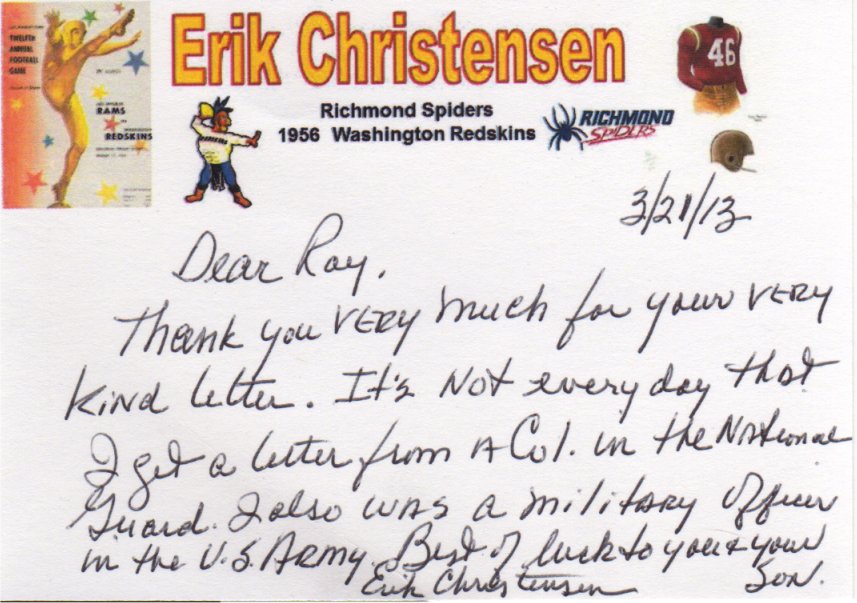 TWELFTH
ANNUAL
FOOTBALL
GAME
RAMS
REDSKINS
Erik Christensen
46
Richmond Spiders
1956 Washington Redskins
RICHMOND
SPIDERS
3/21/13
Dear Ray,
Thank you VERY much for your VERY
kind letter. It's Not every day that
I get a letter from A Col. in the National
Guard. I also was a military officer
in the U.S. Army. Best of luck to you & your
son.
Erik Christensen